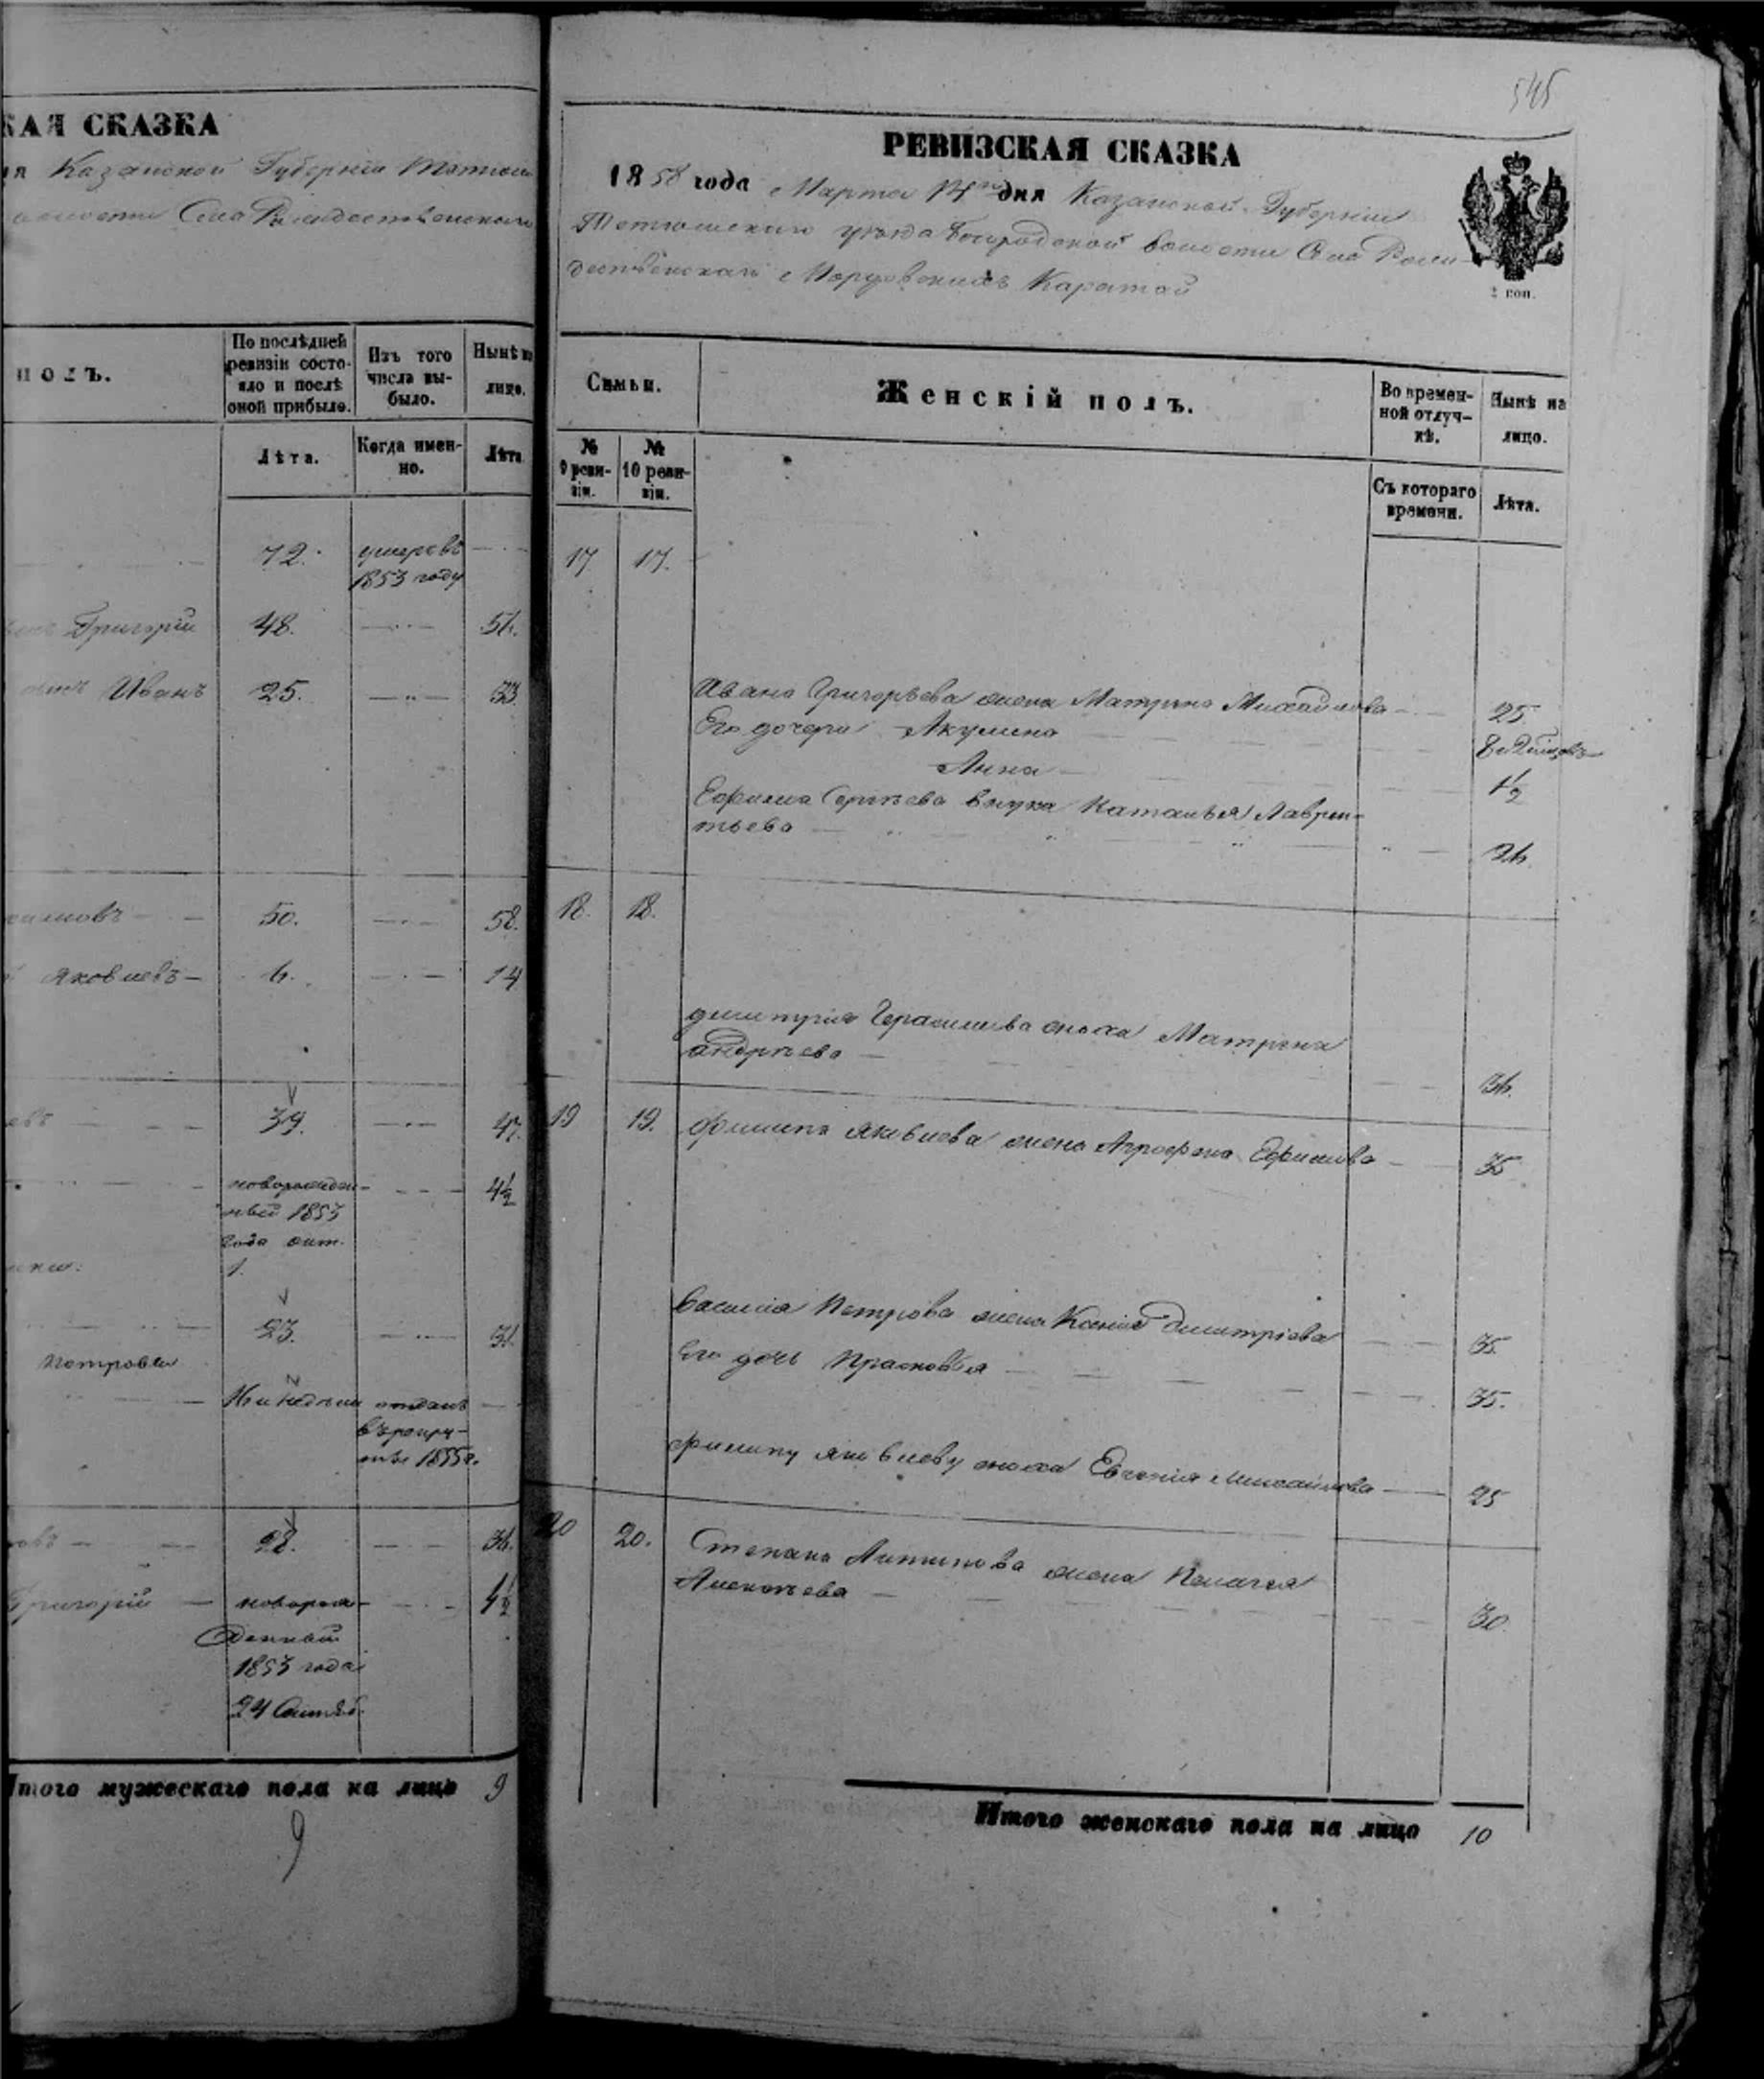 КАЯ СКАЗКА
ія Казанской Губерніи Тетюш
волости Села Рождественскаго
полъ.
По послѣдней
ревизіи состо-
яло и послѣ
оной прибыло.
Изъ того
числа вы-
было.
Нынѣ на
лицо.
Лѣта.
Когда имен-
но.
Лѣта
72. умеръ въ
1853 году
Григорій 48. 56.
Иванъ 25. 33
симовъ 50. 58.
Яковлевъ 6. 14
евъ 39. 47.
новорожден- 4½
ный 1853
года окт.
1.
23. 31.
Петровы
отданъ
въ рекру-
ты 1855 г.
овъ 28. 36.
Григорій новорож- 4½
денный
1853 года
24 Октяб.
Итого мужескаго пола на лицо 9
9
545
РЕВИЗСКАЯ СКАЗКА
1858 года Марта 14го дня Казанской Губерніи
Тетюшскаго уѣзда Богородской волости Села Рож-
дественскаго Мордовскихъ Каратай
2 коп.
Семьи.
Женскій полъ.
Во времен-
ной отлуч-
кѣ.
Нынѣ на
лицо.
№
9 реви-
зіи.
№
10 реви-
зіи.
Съ котораго
времени.
Лѣта.
17 17.
Ивана Григорьева жена Матрена Михайлова 25.
Его дочери Акулина
Анна ½
Ефима Сергѣева внука Наталья Лаврен-
тьева 26.
18. 18.
Димитрія Герасимова сноха Матрена
Андрѣева 36.
19 19. Филипа Яковлева жена Агрофена Ефимова 35
Василія Петрова жена Ксенія Дмитріева 35.
Его дочь Прасковья 35.
Филипу Яковлеву сноха Евгенія Михайлова 25
20 20. Степана Антипова жена Пелагея
Алексѣева 30
Итого женскаго пола на лицо 10